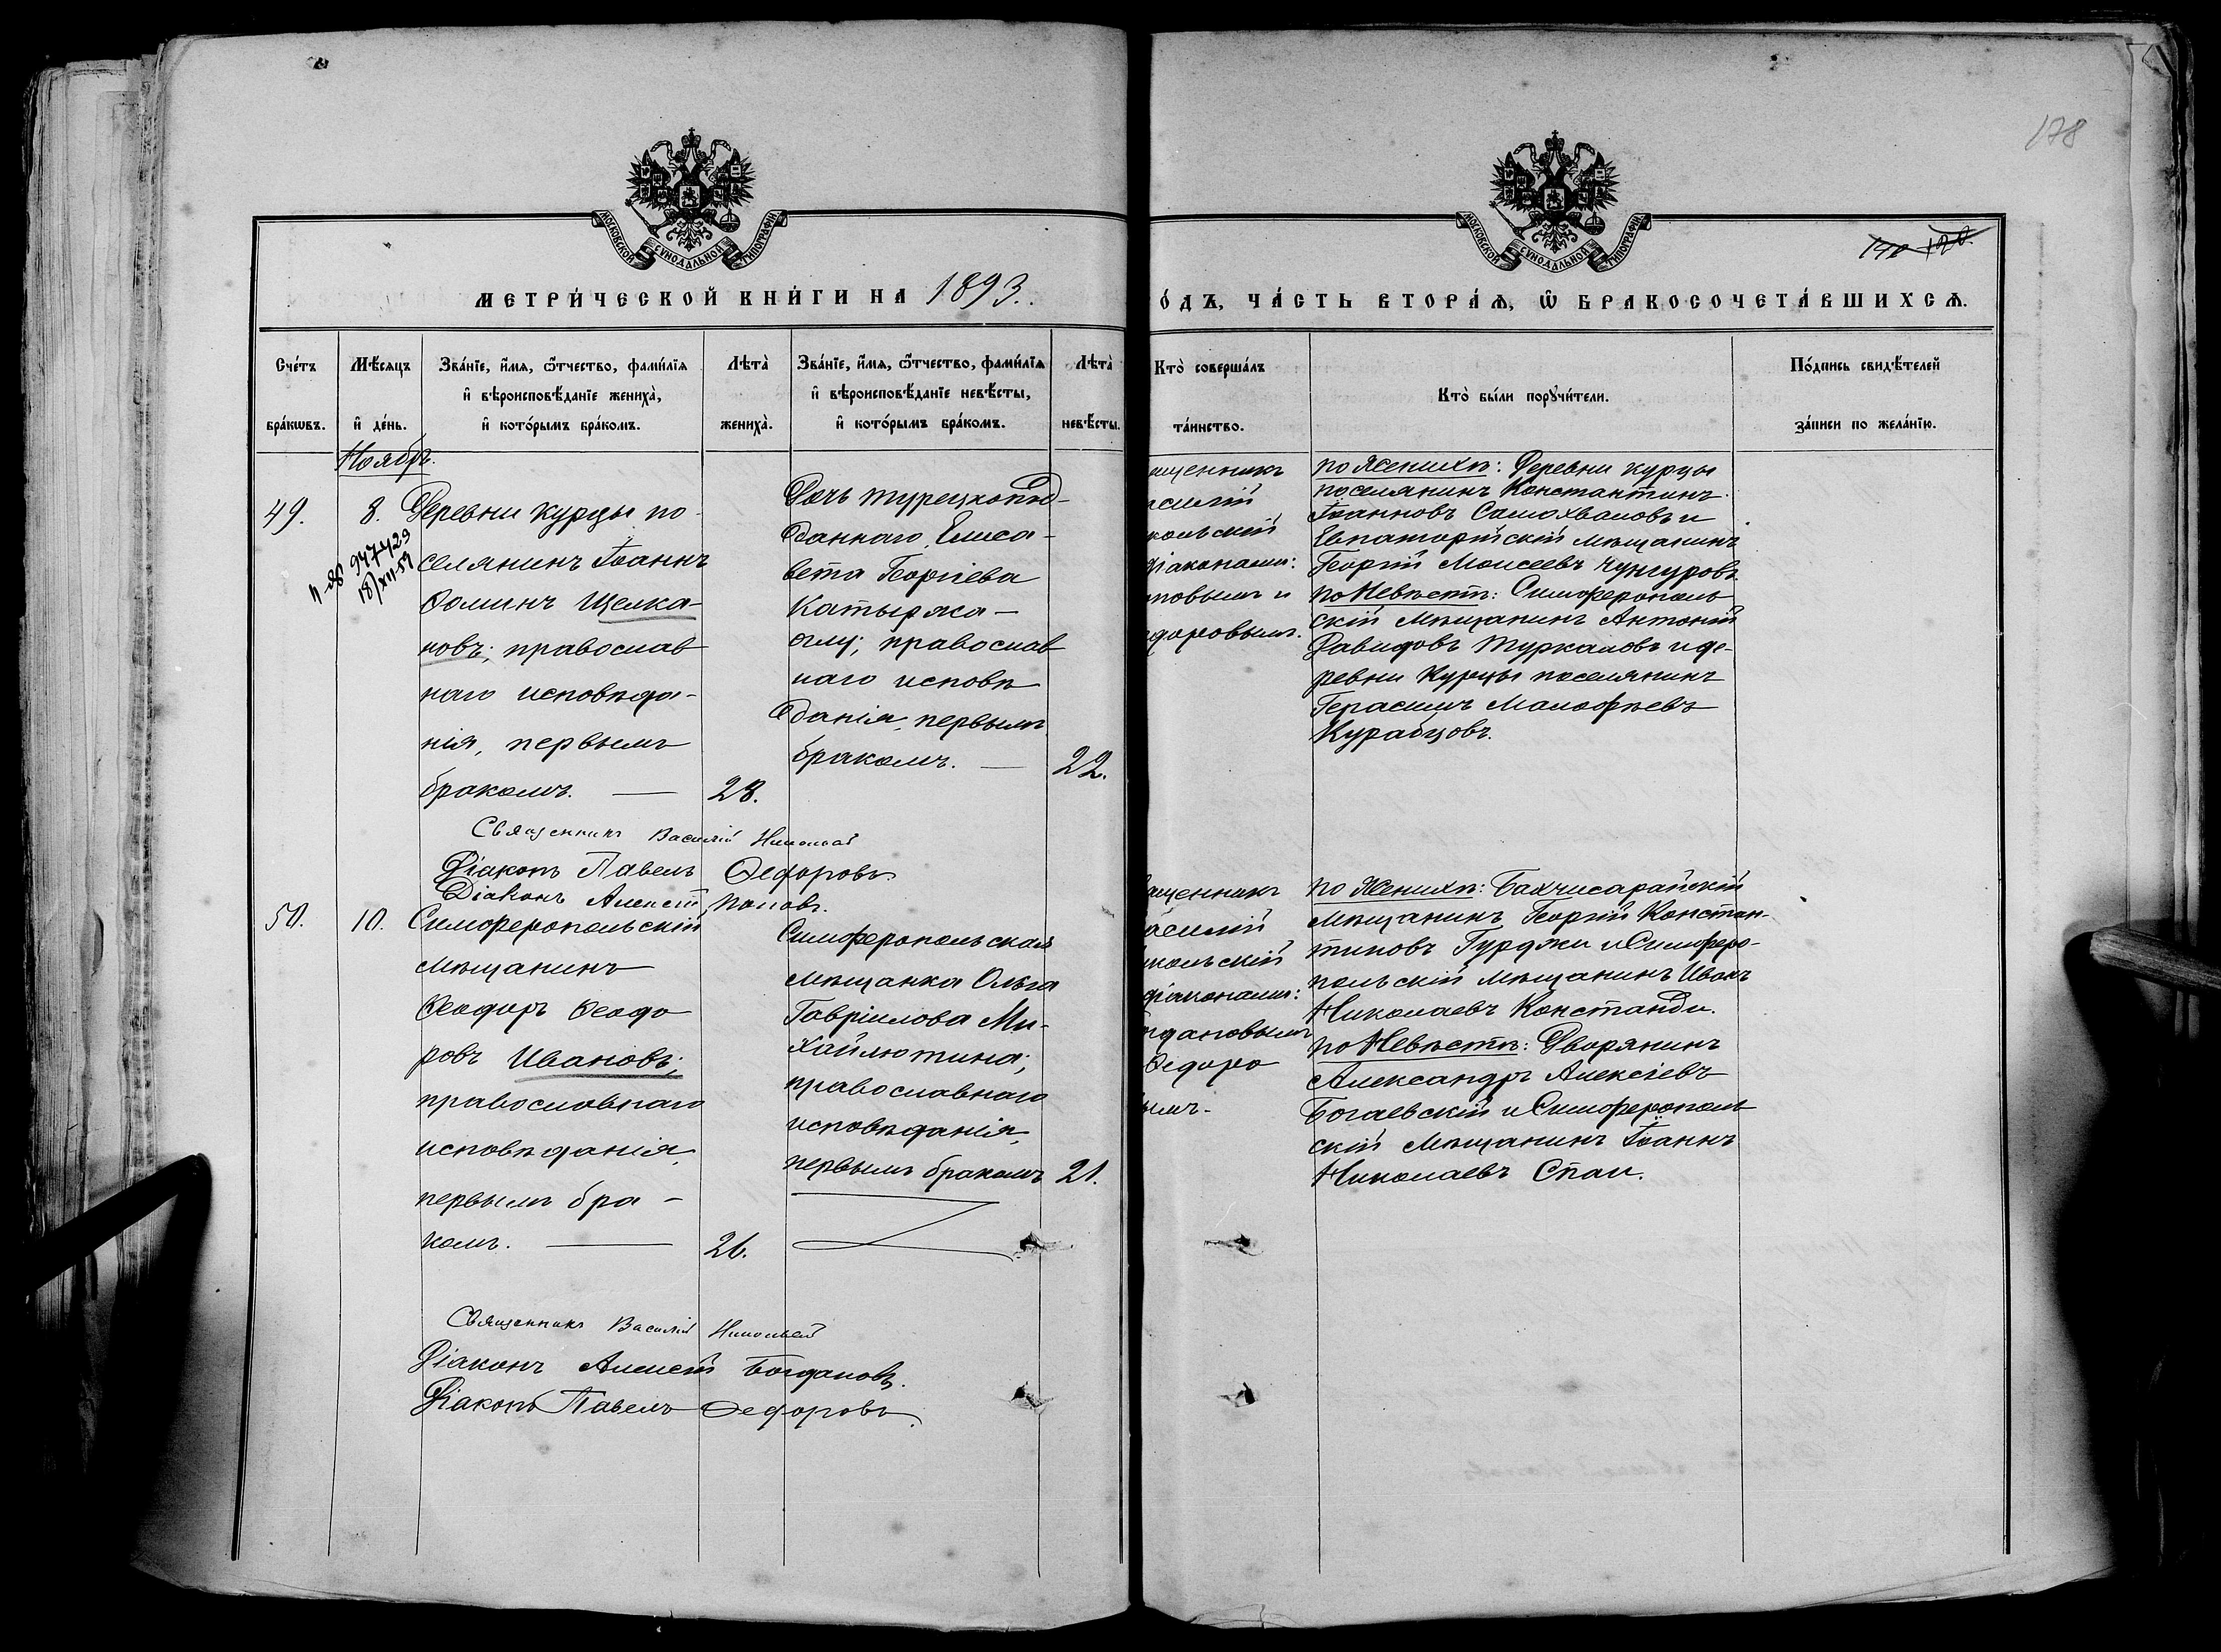 178
МОСКОВСКОЙ СѴНОДАЛЬНОЙ ТИПОГРАФІИ
МОСКОВСКОЙ СѴНОДАЛЬНОЙ ТИПОГРАФІИ
МЕТРИ́ЧЕСКОЙ КНИ́ГИ НА 1893.
О́ДЪ, ЧА́СТЬ ВТОРА́Ѧ, Ѿ БРАКОСОЧЕТА́ВШИХСѦ.
Сче́тъ
бра́кѡвъ.
Мѣ́сяцъ
и҆ де́нь.
Зва́нїе, и҆́мя, ѻ҆́тчество, фами́лїя
и҆ вѣроисповѣ́данїе жениха̀,
и҆ кото́рымъ бра́комъ.
Лѣта̀
жениха̀.
Зва́нїе, и҆́мя, ѻ҆́тчество, фами́лїя
и҆ вѣроисповѣ́данїе невѣ́сты,
и҆ кото́рымъ бра́комъ.
Лѣта̀
невѣ́сты.
Кто̀ соверша́лъ
та́инство.
Кто̀ бы́ли порꙋчи́тели.
По́дпись свидѣ́телей
за́писи по жела́нїю.
Ноябрь.
49.
8.
947429
18/XII-59
Деревни Курцы по-
селянинъ Іоаннъ
Ѳоминъ Щелка-
новъ; православ
наго исповѣда-
нія, первымъ
бракомъ. —
28.
Дочь турецкопод-
даннаго, Елиса-
вета Георгіева
Катыржа-
оглу; православ
наго исповѣ
данія, первымъ
бракомъ. —
22.
ященникъ
асилій
кольскій
діаконами:
оповымъ и
едоровымъ.
по Женихѣ: Деревни Курцы
поселянинъ Константинъ
Іоанновъ Самохваловъ и
Евпаторійскій мѣщанинъ
Георгій Моисеевъ Чунгуровъ
по Невѣстѣ: Симферополь
скій мѣщанинъ Антоній
Давидовъ Туркаловъ и де-
ревни Курцы поселянинъ
Герасимъ Малофѣевъ
Курабцовъ.
Священникъ Василій Никольскій
Діаконъ Павелъ Ѳедоровъ
Діаконъ Алексѣй Поповъ.
50.
10.
Симферопольскій
мѣщанинъ
Ѳеодоръ Ѳеодо
ровъ Ивановъ;
православнаго
исповѣданія,
первымъ бра-
комъ. —
26.
Симферопольская
мѣщанка Ольга
Гавріилова Ми-
хайлютина;
православнаго
исповѣданія,
первымъ бракомъ
21.
ященникъ
асилій
икольскій
діаконами:
огдановымъ
Ѳедоро
ымъ.
по Женихѣ: Бахчисарайскій
мѣщанинъ Георгій Констан-
тиновъ Гурджи и Симферо-
польскій мѣщанинъ Иванъ
Николаевъ Констанди.
по Невѣстѣ: Дворянинъ
Александръ Алексѣевъ
Богаевскій и Симферополь
скій мѣщанинъ Іоаннъ
Николаевъ Спаи.
Священникъ Василій Никольскій
Діаконъ Алексѣй Богдановъ.
Діаконъ Павелъ Ѳедоровъ.